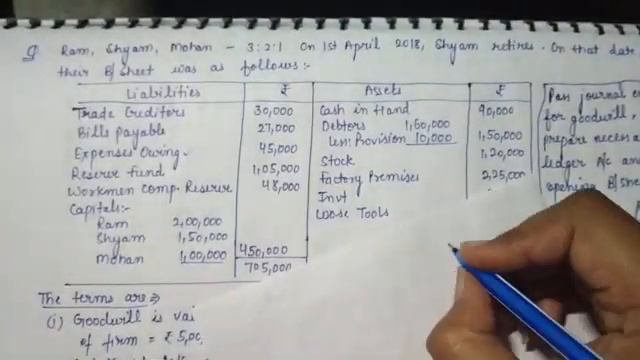 Q Ram, Shyam, Mohan - 3:2:1 On 1st April 2018, Shyam retires. On that date
their B/Sheet was as follows:-
Liabilities ₹ Assets ₹
Trade Creditors 30,000 Cash in Hand 90,000
Bills Payable 27,000 Debtors 1,60,000
Less: Provision 10,000 1,50,000
Expenses Owing 45,000 Stock 1,20,000
Reserve Fund 1,05,000 Factory Premises 2,25,000
Workmen Comp. Reserve 48,000 Invt
Capitals:- Loose Tools
Ram 2,00,000
Shyam 1,50,000
Mohan 1,00,000 450,000
705,000
Pass journal
for goodwill,
prepare
ledger A/c and
opening
The terms are ⇒
(i) Goodwill is
of firm = ₹